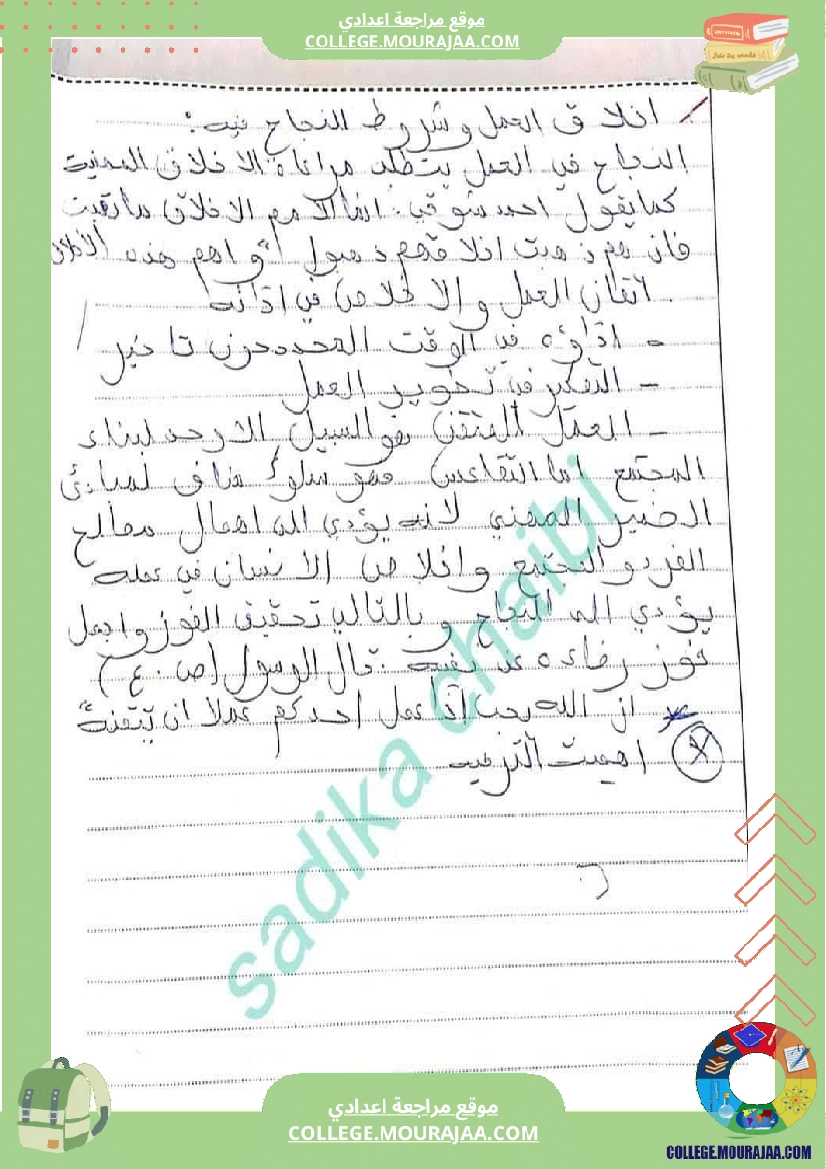 موقع مراجعة اعدادي
COLLEGE.MOURAJAA.COM
اخلاق العمل وشروط النجاح فيه:
النجاح في العمل يتطلب مراعاة الاخلاق المهنية
كما يقول احمد شوقي: انما الامم الاخلاق ما بقيت
فان هم ذهبت اخلاقهم ذهبوا" واهم هذه الاخلاق
. اتقان العمل والاخلاص في ادائه
- اداؤه في الوقت المحدد دون تاخير
- التفكير في تطوير العمل
- العمل المتقن هو السبيل الاوحد لبناء
المجتمع اما التقاعس فهو سلوك مناف لمبادئ
الضمير المهني لانه يؤدي الى اهمال مصالح
الفرد والمجتمع واخلاص الانسان في عمله
يؤدي الى النجاح وبالتالي تحقيق الفوز واجمل
فوز رضاءه عن نفسه. قال الرسول (ص.ع)
ان الله يحب اذا عمل احدكم عملا ان يتقنه"
اهميت الترفيه
sadika chaibi
موقع مراجعة اعدادي
COLLEGE.MOURAJAA.COM
COLLEGE.MOURAJAA.COM